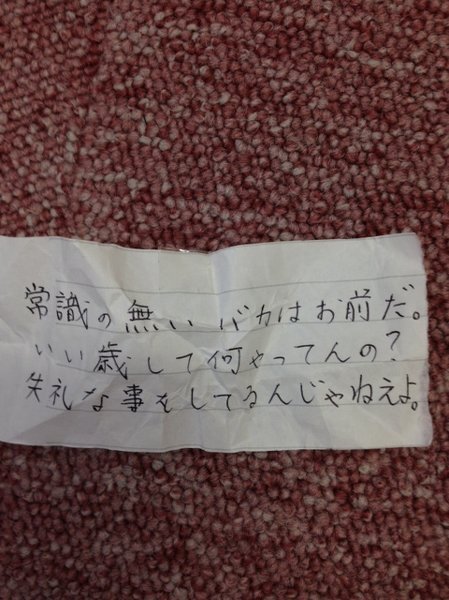 常識の無いバカはお前だ。
いい歳して何やってんの?
失礼な事をしてるんじゃねえよ。